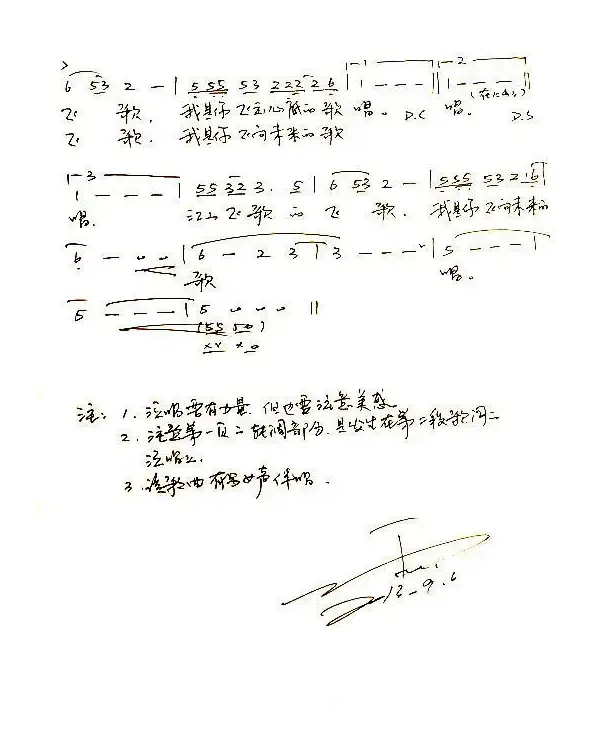 6 53 2 — | 5 55 53 222 26 | 1 - - - | 1 - - -
飞 歌. 我是你飞出心底的歌 唱。 D.C 唱。 D.S
飞 歌. 我是你飞向未来的歌
1 - - - | 55 32 3. 5 | 6 53 2 — | 555 53 216 |
唱. 江山飞歌的飞 歌. 我是你飞向未来的
6 - | 6 — 2 3 | 3 - - - | 5 - - - |
歌 唱。
5 - - - | 5 ||
(55 50)
xx x0
注: 1. 演唱要有力量, 但也要注意美感
2. 注意第一页二转调部分, 只出在第二段歌词二
演唱上.
3. 该歌曲有男女声伴唱.
13-9.6